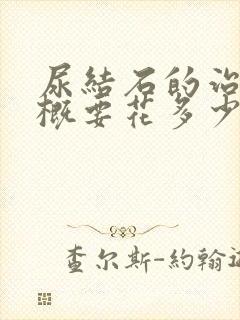 尿結石的治
概要花多少
查尔斯-約翰